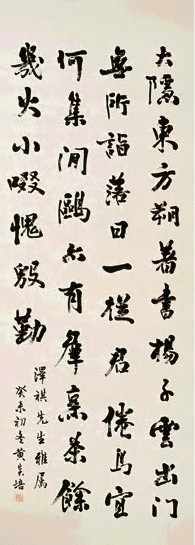 大隱東方朔著書楊子雲出門
無所詣落日一從君倦鳥宜
何集閒鷗亦有群烹茶餘
幾火小啜愧殷勤
澤祺先生雅屬
癸未初冬黃炎培